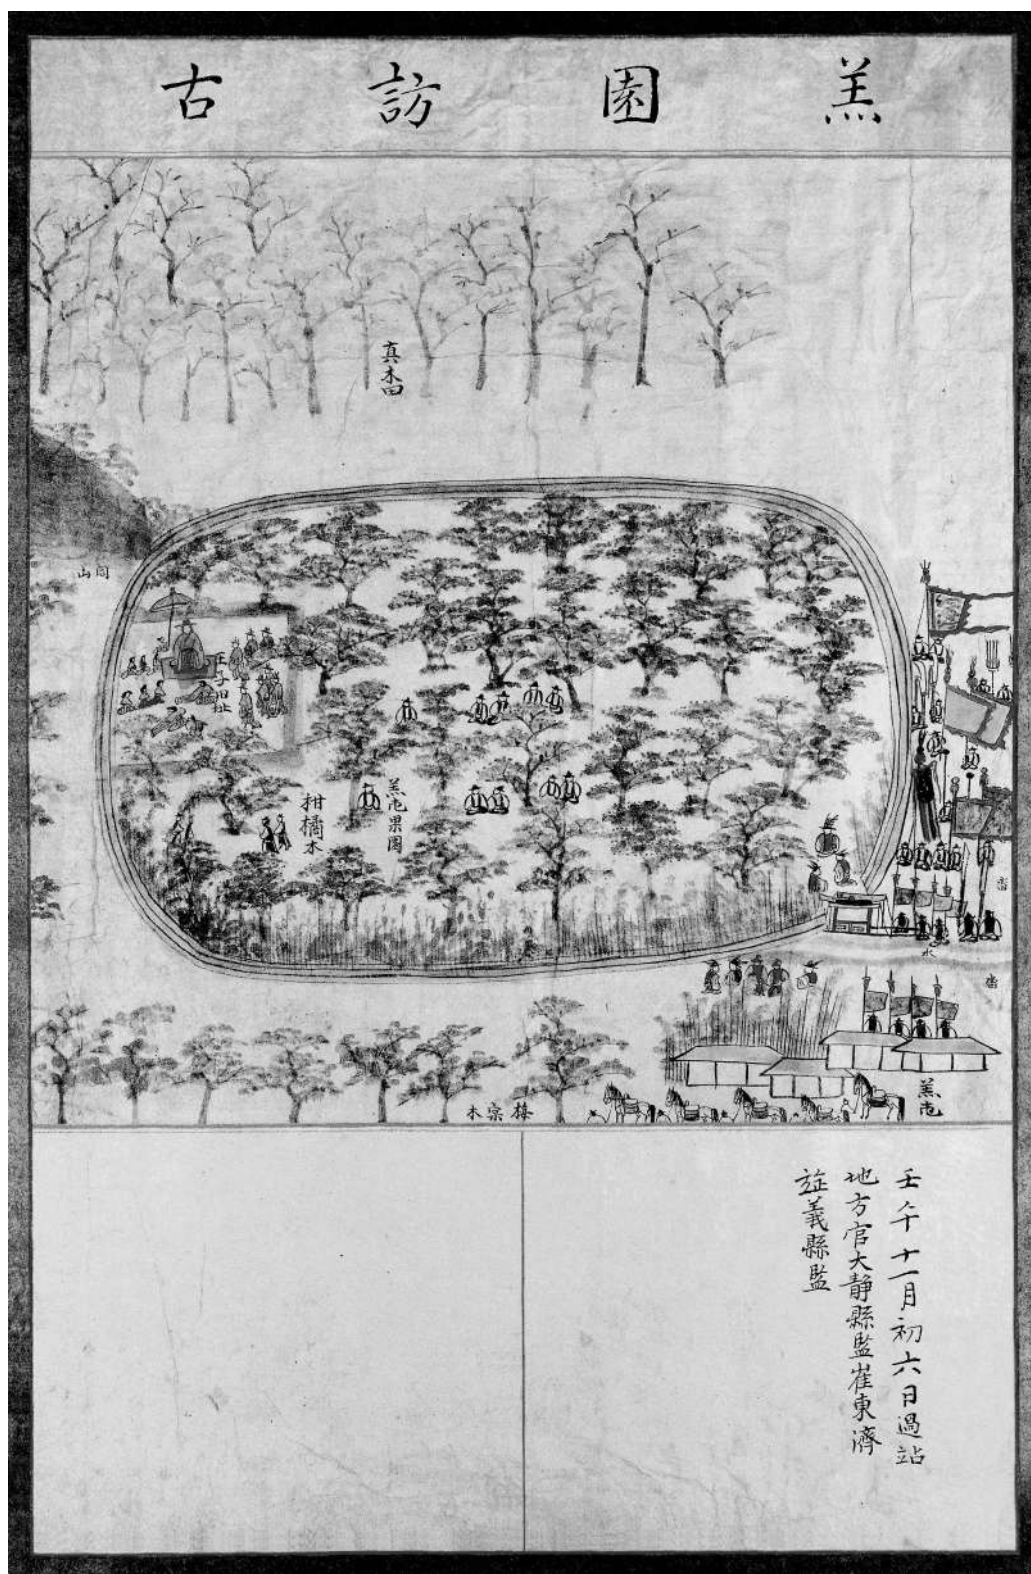 羔園訪古
真木田
王子旧址
柑橘木
羔屯果園
畓
水
畓
羔屯
梅宗木
壬午十一月初六日過站
地方官大静縣監崔東濟
旌義縣監